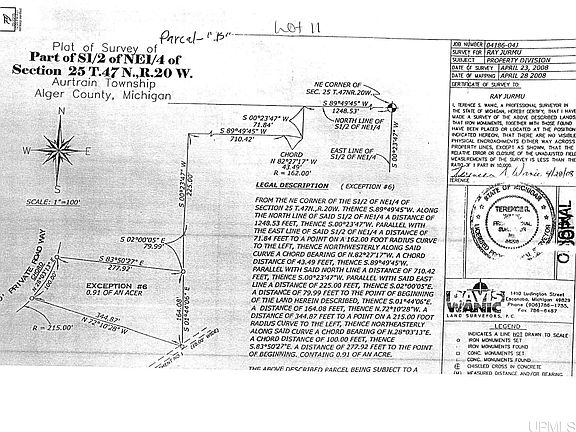 Parcel-"B"
Lot 11
Plat of Survey of
Part of S1/2 of NE1/4 of
Section 25 T.47 N.,R.20 W.
Aurtrain Township
Alger County, Michigan
N
W
E
S
SCALE: 1"=100'
NE CORNER OF
SEC. 25 T.47N.,R.20W.
S 89°49'45" W
1248.53'
NORTH LINE OF
S1/2 OF NE1/4
S 00°23'47" W
71.84'
S 89°49'45" W
710.42'
EAST LINE OF
S1/2 OF NE1/4
S 00°23'47" W
CHORD
N 82°27'17" W
43.49'
R = 162.00'
S 00°23'47" W
225.00'
S 02°00'05" E
79.99'
PRIVATE ROAD WAY
S 83°50'27" E
277.92'
EXCEPTION #6
0.91 OF AN ACRE
164.08'
S 01°44'06" E
344.87'
N 72°10'28" W
R = 215.00'
LEGAL DESCRIPTION (EXCEPTION #6)
FROM THE NE CORNER OF THE S1/2 OF NE1/4 OF
SECTION 25,T.47N.,R.20W., THENCE S.89°49'45"W. ALONG
THE NORTH LINE OF SAID S1/2 OF NE1/4 A DISTANCE OF
1248.53 FEET, THENCE S.00°23'47"W. PARALLEL WITH
THE EAST LINE OF SAID S1/2 OF NE1/4 A DISTANCE OF
71.84 FEET TO A POINT ON A 162.00 FOOT RADIUS CURVE
TO THE LEFT, THENCE NORTHWESTERLY ALONG SAID
CURVE A CHORD BEARING OF N.82°27'17"W. A CHORD
DISTANCE OF 43.49 FEET, THENCE S.89°49'45"W.
PARALLEL WITH SAID NORTH LINE A DISTANCE OF 710.42
FEET, THENCE S.00°23'47"W. PARALLEL WITH SAID EAST
LINE A DISTANCE OF 225.00 FEET, THENCE S.02°00'05"E.
A DISTANCE OF 79.99 FEET TO THE POINT OF BEGINNING
OF THE LAND HEREIN DESCRIBED, THENCE S.01°44'06"E.
A DISTANCE OF 164.08 FEET, THENCE N.72°10'28"W. A
DISTANCE OF 344.87 FEET TO A POINT ON A 215.00 FOOT
RADIUS CURVE TO THE LEFT, THENCE NORTHEASTERLY
ALONG SAID CURVE A CHORD BEARING OF N.28°03'13"E.
A CHORD DISTANCE OF 100.00 FEET, THENCE
S.83°50'27"E. A DISTANCE OF 277.92 FEET TO THE POINT
OF BEGINNING, CONTAINING 0.91 OF AN ACRE.
THE ABOVE DESCRIBED PARCEL BEING SUBJECT TO A
JOB NUMBER 04186-04J
SURVEY FOR RAY JURMU
SUBJECT PROPERTY DIVISION
DATE OF SURVEY APRIL 23, 2008
DATE OF MAPPING APRIL 28 2008
CERTIFICATE OF SURVEY TO
RAY JURMU
I, TERENCE S. WANIC, A PROFESSIONAL SURVEYOR IN
THE STATE OF MICHIGAN, HEREBY CERTIFY, THAT I HAVE
MADE A SURVEY OF THE ABOVE DESCRIBED LANDS
THAT IRON MONUMENTS, TOGETHER WITH THOSE FOUND
HAVE BEEN PLACED OR LOCATED AT THE POSITION
INDICATED HEREON, THAT THERE ARE NO VISIBLE
PHYSICAL ENCROACHMENTS EITHER WAY ACROSS
PROPERTY LINES, EXCEPT AS SHOWN, THAT THE
RELATIVE ERROR OF CLOSURE OF THE UNADJUSTED FIELD
MEASUREMENTS OF THE SURVEY IS LESS THAN THE
RATIO OF 1 PART IN 10,000.
STATE OF MICHIGAN
PROFESSIONAL SURVEYOR
DAVIS
WANIC
LAND SURVEYORS, P.C.
1410 Ludington Street
Escanaba, Michigan 49829
Phone (906)786-1755,
Fax 786-6487
LEGEND
INDICATES A LINE NOT DRAWN TO SCALE
IRON MONUMENTS SET
IRON MONUMENTS FOUND
CONC. MONUMENTS SET
CONC. MONUMENTS FOUND
CHISELED CROSS IN CONCRETE
(M) MEASURED DISTANCE AND/OR BEARING
UPMLS